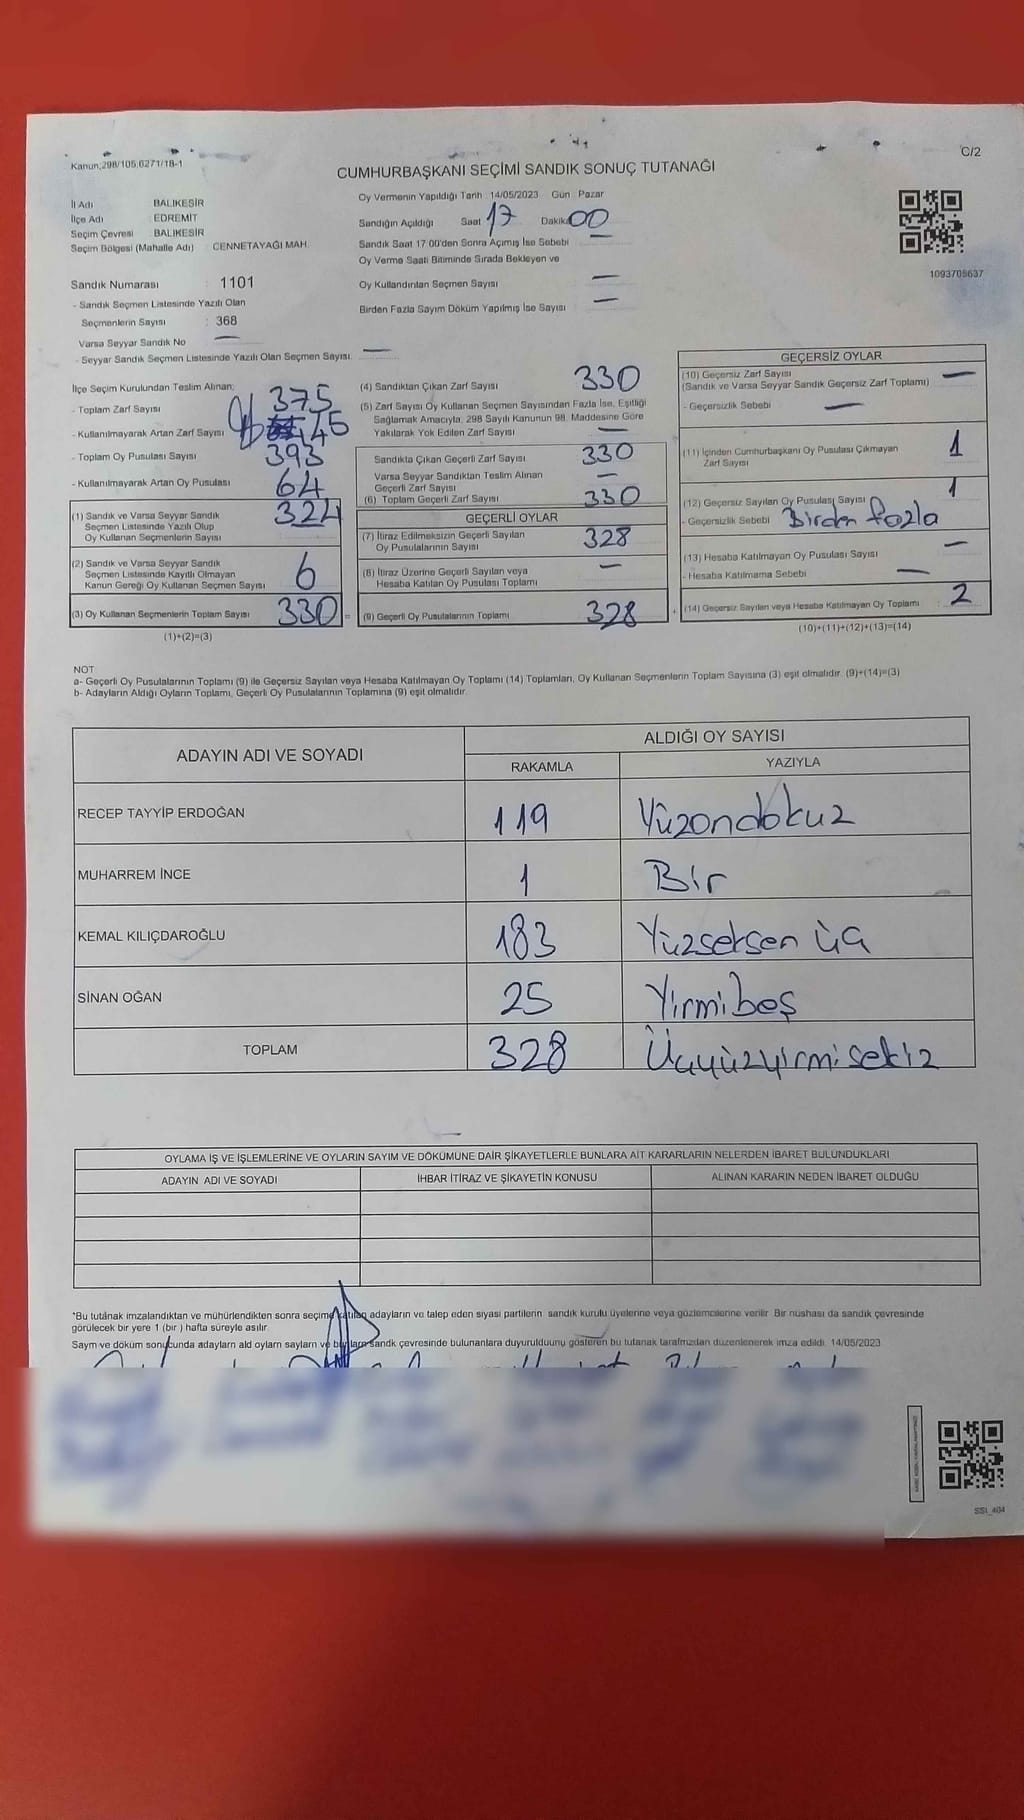 Kanun;298/105,6271/18-1
C/2
CUMHURBAŞKANI SEÇİMİ SANDIK SONUÇ TUTANAĞI
İl Adı BALIKESİR
İlçe Adı EDREMİT
Seçim Çevresi : BALIKESİR
Seçim Bölgesi (Mahalle Adı) : CENNETAYAĞI MAH.
Oy Vermenin Yapıldığı Tarih : 14/05/2023 Gün : Pazar
Sandığın Açıldığı Saat 17 Dakika 00
Sandık Saat 17:00'den Sonra Açımış İse Sebebi —
Oy Verme Saati Bitiminde Sırada Bekleyen ve
Oy Kullandırılan Seçmen Sayısı —
Birden Fazla Sayım Döküm Yapılmış İse Sayısı —
1093705637
Sandık Numarası : 1101
- Sandık Seçmen Listesinde Yazılı Olan
Seçmenlerin Sayısı : 368
Varsa Seyyar Sandık No —
- Seyyar Sandık Seçmen Listesinde Yazılı Olan Seçmen Sayısı: —
İlçe Seçim Kurulundan Teslim Alınan;
- Toplam Zarf Sayısı 375
- Kullanılmayarak Artan Zarf Sayısı 45
- Toplam Oy Pusulası Sayısı 393
- Kullanılmayarak Artan Oy Pusulası 64
(1) Sandık ve Varsa Seyyar Sandık
Seçmen Listesinde Yazılı Olup
Oy Kullanan Seçmenlerin Sayısı 324
(2) Sandık ve Varsa Seyyar Sandık
Seçmen Listesinde Kayıtlı Olmayan
Kanun Gereği Oy Kullanan Seçmen Sayısı 6
(3) Oy Kullanan Seçmenlerin Toplam Sayısı 330 =
(1)+(2)=(3)
(4) Sandıktan Çıkan Zarf Sayısı 330
(5) Zarf Sayısı Oy Kullanan Seçmen Sayısından Fazla İse, Eşitliği
Sağlamak Amacıyla, 298 Sayılı Kanunun 98. Maddesine Göre
Yakılarak Yok Edilen Zarf Sayısı —
Sandıkta Çıkan Geçerli Zarf Sayısı 330
Varsa Seyyar Sandıktan Teslim Alınan
Geçerli Zarf Sayısı —
(6) Toplam Geçerli Zarf Sayısı 330
GEÇERLİ OYLAR
(7) İtiraz Edilmeksizin Geçerli Sayılan
Oy Pusulalarının Sayısı 328
(8) İtiraz Üzerine Geçerli Sayılan veya
Hesaba Katılan Oy Pusulası Toplamı —
(9) Geçerli Oy Pusulalarının Toplamı 328 +
GEÇERSİZ OYLAR
(10) Geçersiz Zarf Sayısı —
(Sandık ve Varsa Seyyar Sandık Geçersiz Zarf Toplamı)
- Geçersizlik Sebebi —
(11) İçinden Cumhurbaşkanı Oy Pusulası Çıkmayan
Zarf Sayısı 1
(12) Geçersiz Sayılan Oy Pusulası Sayısı 1
- Geçersizlik Sebebi Birden fazla
(13) Hesaba Katılmayan Oy Pusulası Sayısı —
- Hesaba Katılmama Sebebi —
(14) Geçersiz Sayılan veya Hesaba Katılmayan Oy Toplamı : 2
(10)+(11)+(12)+(13)=(14)
NOT
a- Geçerli Oy Pusulalarının Toplamı (9) ile Geçersiz Sayılan veya Hesaba Katılmayan Oy Toplamı (14) Toplamları, Oy Kullanan Seçmenlerin Toplam Sayısına (3) eşit olmalıdır. (9)+(14)=(3)
b- Adayların Aldığı Oyların Toplamı, Geçerli Oy Pusulalarının Toplamına (9) eşit olmalıdır.
ADAYIN ADI VE SOYADI
ALDIĞI OY SAYISI
RAKAMLA YAZIYLA
RECEP TAYYİP ERDOĞAN 119 Yüzondokuz
MUHARREM İNCE 1 Bir
KEMAL KILIÇDAROĞLU 183 Yüzseksen üç
SİNAN OĞAN 25 Yirmibeş
TOPLAM 328 Üçyüzyirmisekiz
OYLAMA İŞ VE İŞLEMLERİNE VE OYLARIN SAYIM VE DÖKÜMÜNE DAİR ŞİKAYETLERLE BUNLARA AİT KARARLARIN NELERDEN İBARET BULUNDUKLARI
ADAYIN ADI VE SOYADI İHBAR İTİRAZ VE ŞİKAYETİN KONUSU ALINAN KARARIN NEDEN İBARET OLDUĞU
*Bu tutanak imzalandıktan ve mühürlendikten sonra seçime katılan adayların ve talep eden siyasi partilerin sandık kurulu üyelerine veya gözlemcilerine verilir. Bir nüshası da sandık çevresinde
görülecek bir yere 1 (bir ) hafta süreyle asılır.
Saym ve döküm sonucunda adaylarn ald oylarn saylarn ve bunlarn sandk çevresinde bulunanlara duyurulduunu gösteren bu tutanak tarafmzdan düzenlenerek imza edildi. 14/05/2023
SSI_404